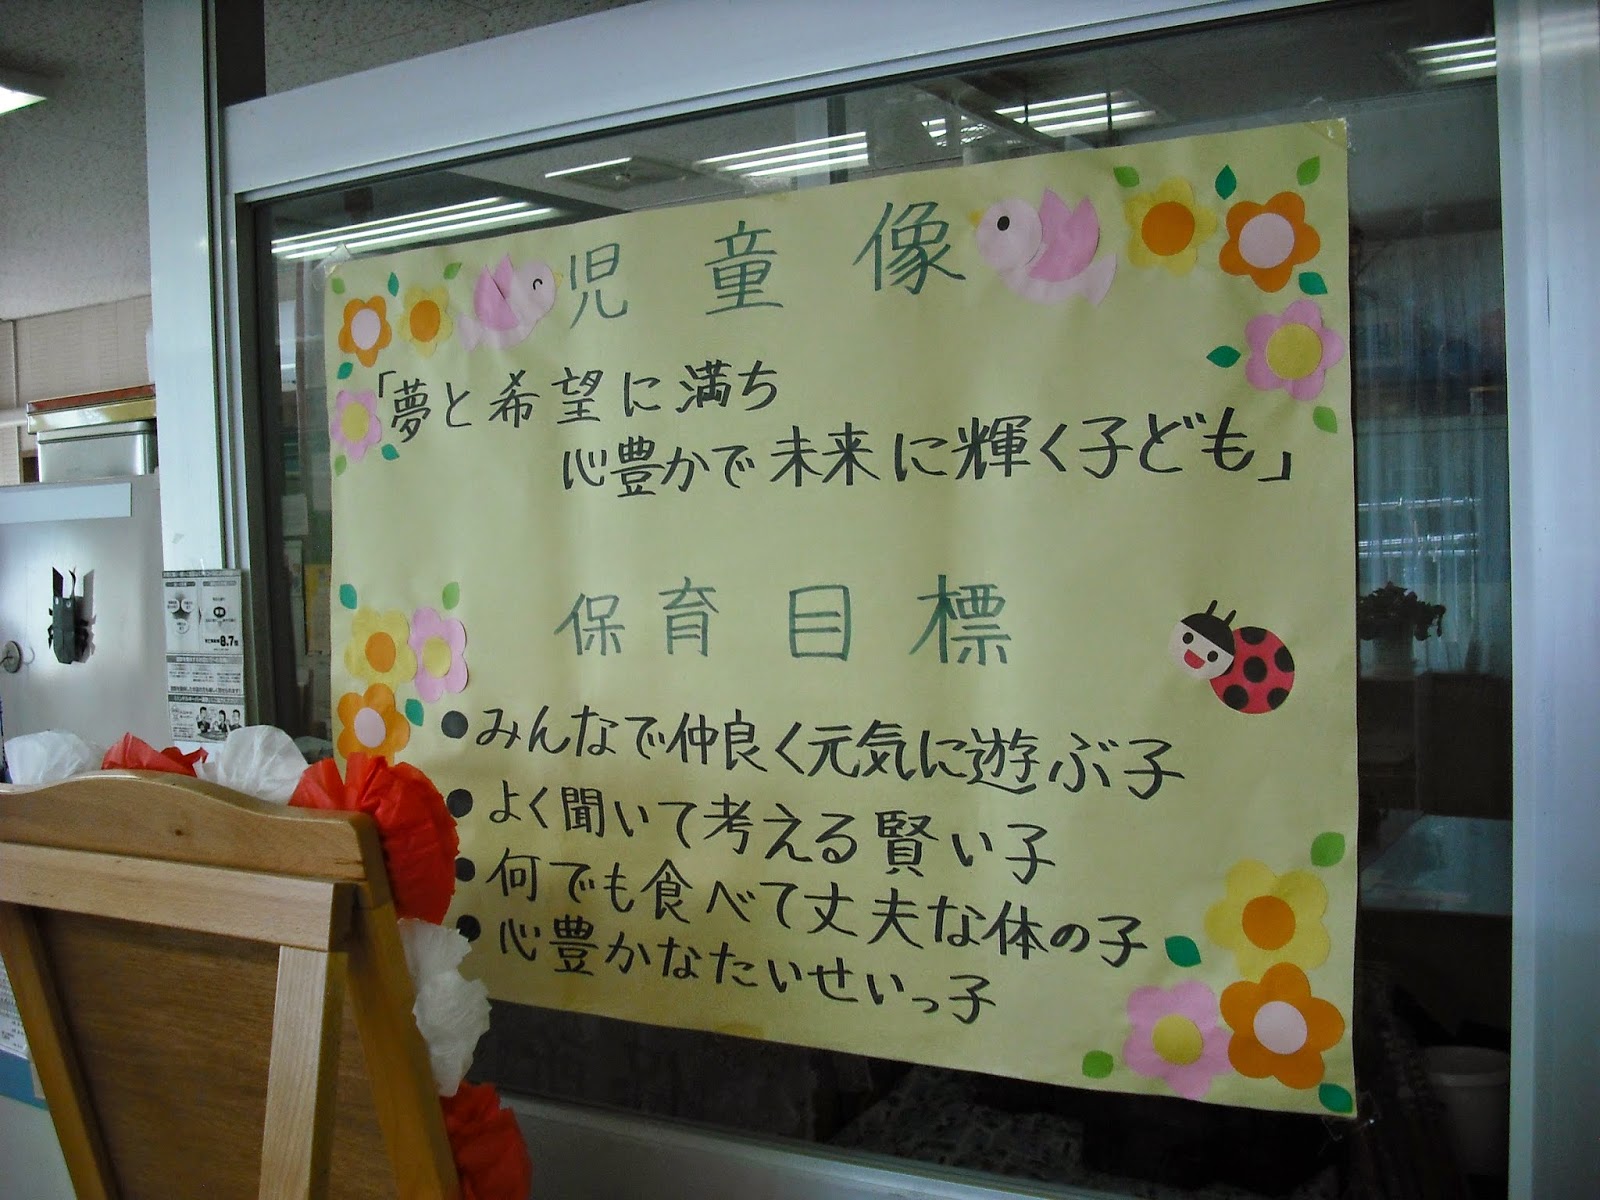 児童像
「夢と希望に満ち
心豊かで未来に輝く子ども」
保育目標
●みんなで仲良く元気に遊ぶ子
●よく聞いて考える賢い子
●何でも食べて丈夫な体の子
●心豊かなたいせいっ子
8.7